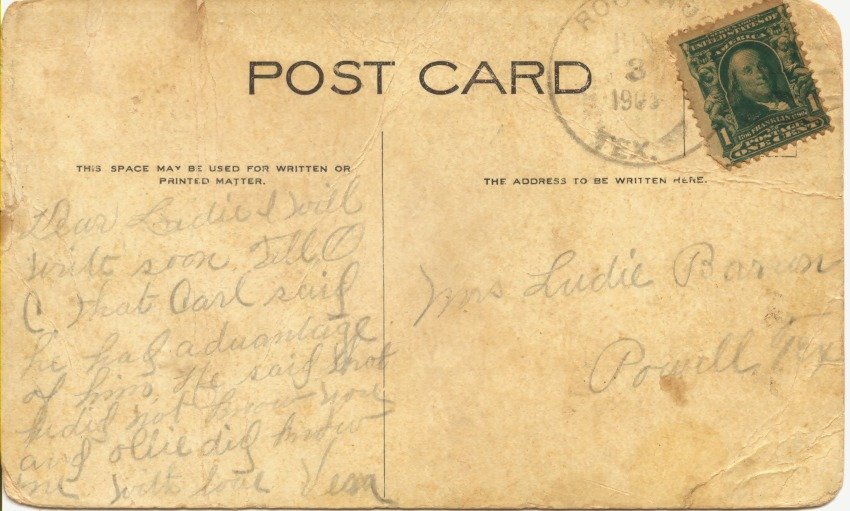 POST CARD
JUN
3
TEX.
UNITED STATES OF
AMERICA
1 FRANKLIN 1
POSTAGE
ONE CENT
THIS SPACE MAY BE USED FOR WRITTEN OR
PRINTED MATTER.
THE ADDRESS TO BE WRITTEN HERE.
Dear Ludie I will
write soon. Tell O
C that Carl said
he had advantage
of him. He said that
he did not know you
and Ollie did know
me with love Vera
Mrs Ludie Barron
Powell, Tex